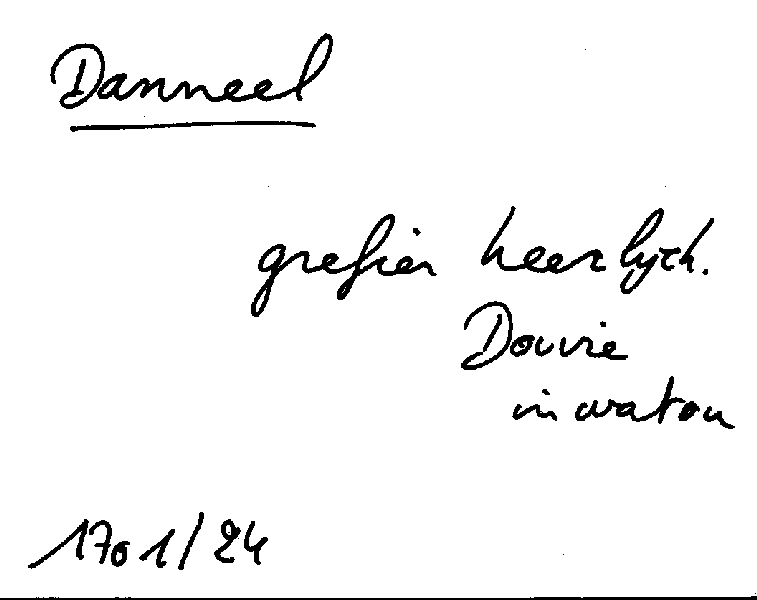 Danneel
grefier heerlyck.
Douvie
in watou
1701/24